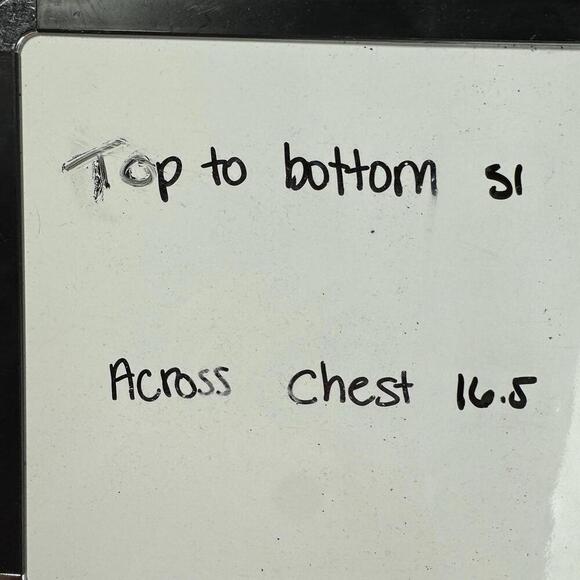 Top to bottom 51
Across Chest 16.5